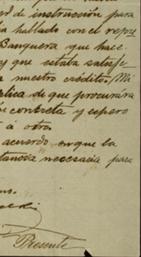 de instrucción para
hablado con el repre
Banquera que hace
y que estaba satisfe
a nuestro crédito. Mi
plica de que procurára
contrata y espero
á otra
acuerdo, orque la
necesaria para
Presente